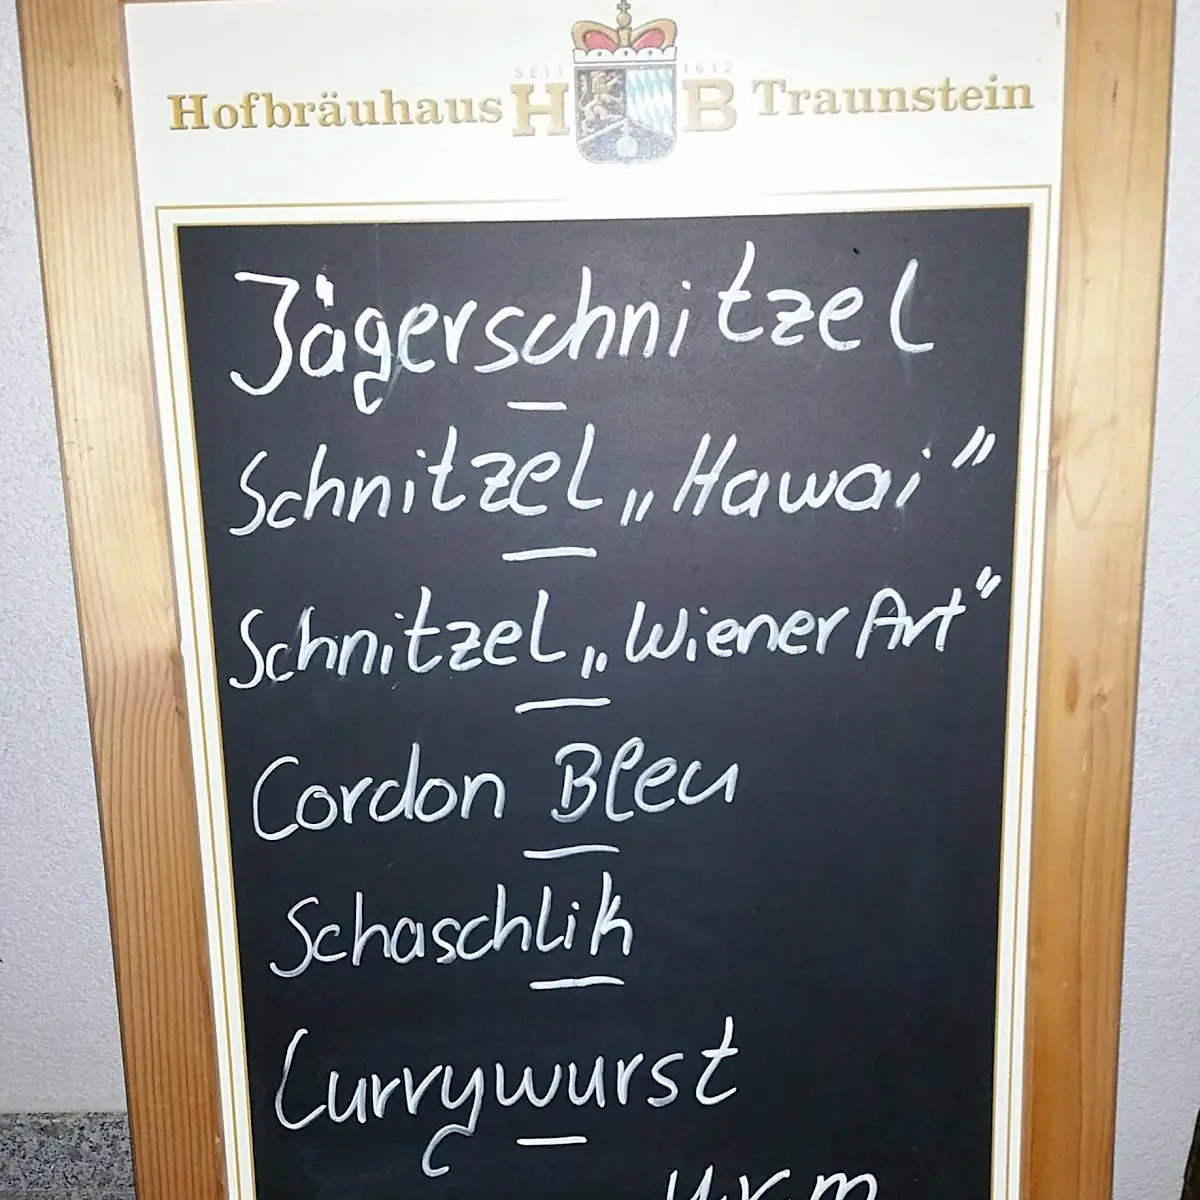 SEIT 1612
Hofbräuhaus HB Traunstein
Jägerschnitzel
Schnitzel „Hawai"
Schnitzel „Wiener Art"
Cordon Bleu
Schaschlik
Currywurst
u.v.m